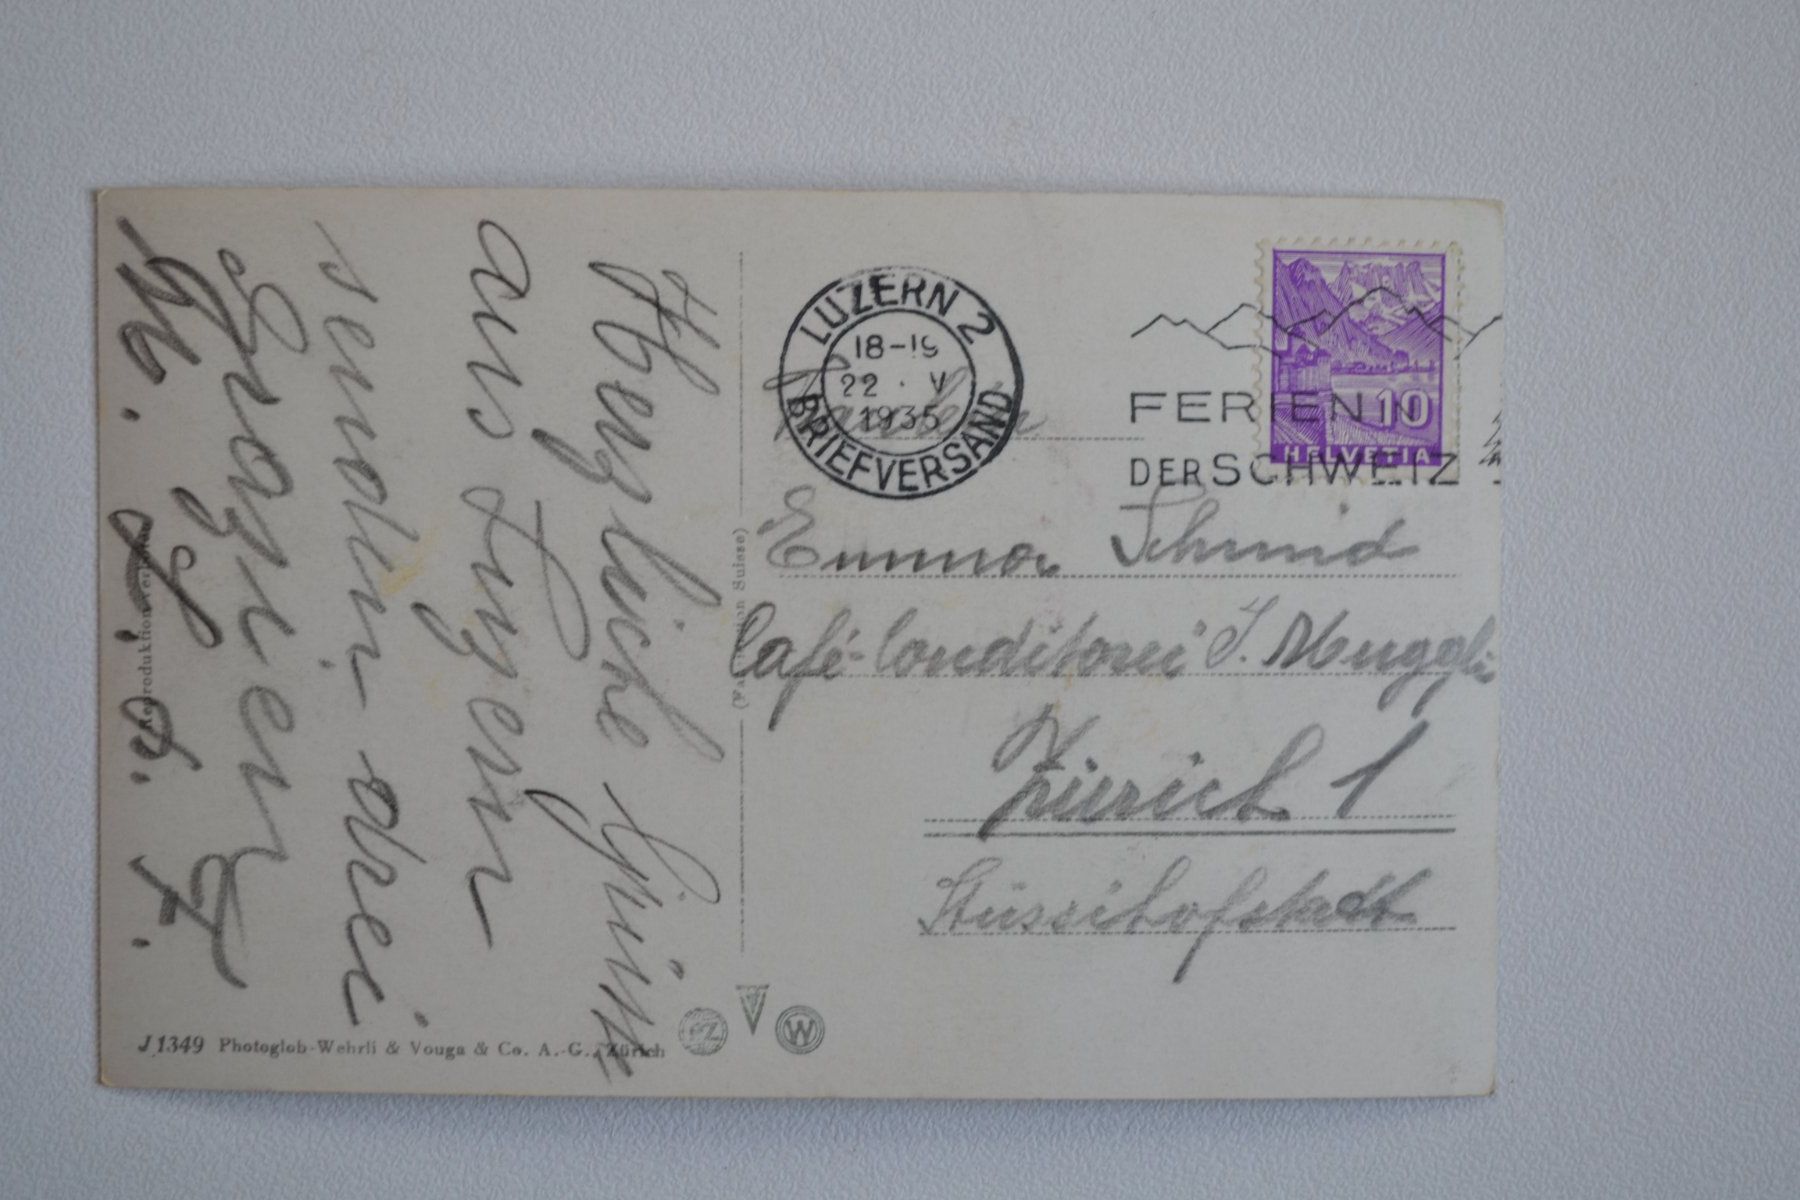 Herzliche Grüsse
aus Luzern
senden drei
Grazien
LUZERN 2
18-19
22 . V
1935
BRIEFVERSAND
FERIEN IN
DER SCHWEIZ
10
HELVETIA
Fräulein
Emma Schmid
Café-Conditorei J. Muggli
Zürich 1
Stüssihofstadt
Reproduktion verboten
J 1349 Photoglob-Wehrli & Vouga & Co. A.-G., Zürich
PZ
V
W